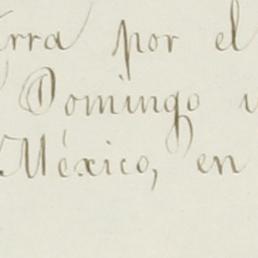 rra por el
Domingo
México, en